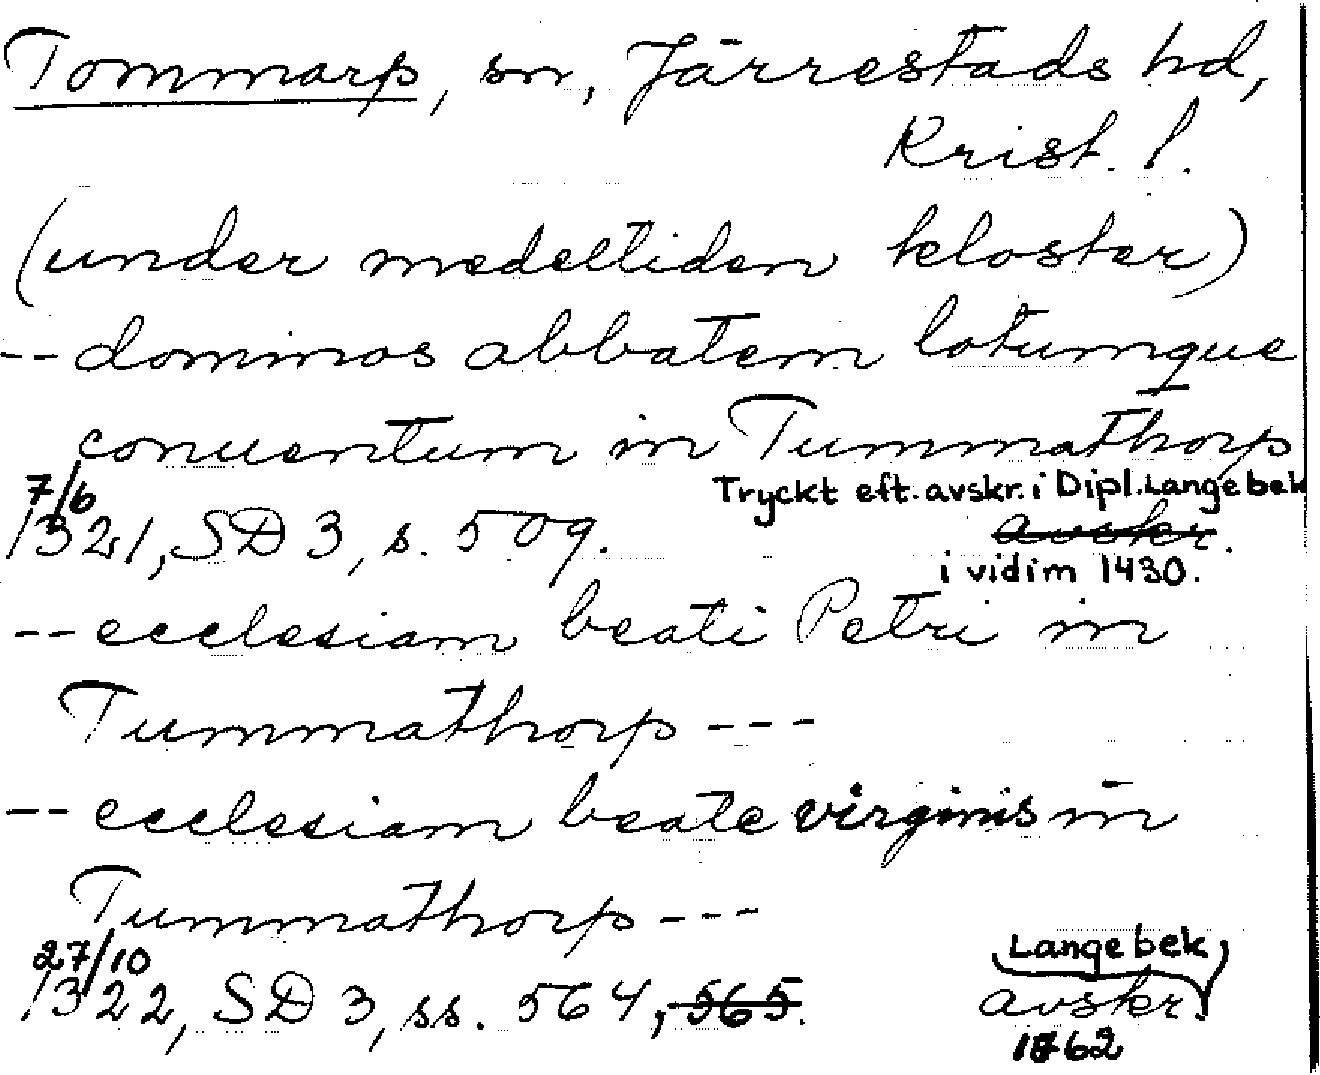 Tommarp, sn, Järrestads hd,
Krist. l.
(under medeltiden kloster)
-- dominos abbatem totumque
conuentum in Tummathorp
7/6 Tryckt eft. avskr. i Dipl. Langebek
1321, SD 3, s. 509. avskr.
i vidim 1430.
-- ecclesiam beati Petri in
Tummathorp ---
-- ecclesiam beate virginis in
Tummathorp ---
27/10 Langebek
1322, SD 3, ss. 564, 565. avskr.
1762